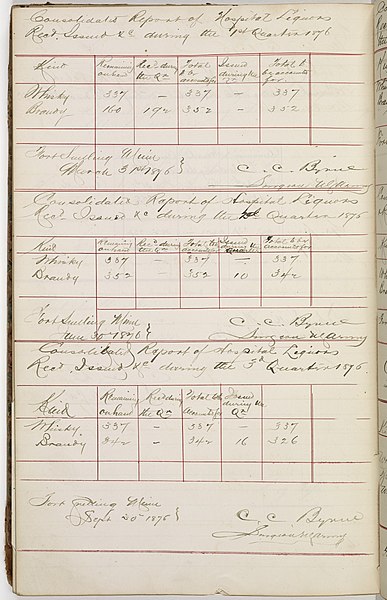 Consolidated Report of Hospital Liquors
Recd. Issued &c during the 1st Quarter 1876
Kind Remaining on hand Rec'd during the Qr Total to be accounted for Issued during the Qr Total to be accounted for
Whisky 337 — 337 — 337
Brandy 160 192 352 — 352
Fort Snelling Minn
March 31st 1876 } C. C. Byrne
Surgeon U.S. Army
Consolidated Report of Hospital Liquors
Recd Issued &c during the 2d Quarter 1876
Kind Remaining on hand Recd during the Qr Total to be accounted for Issued during the Qr Total to be accounted for
Whisky 337 — 337 — 337
Brandy 352 — 352 10 342
Fort Snelling Minn
June 30th 1876 } C. C. Byrne
Surgeon U.S. Army
Consolidated Report of Hospital Liquors
Recd Issued &c during the 3d Quarter 1876
Kind Remaining on hand Recd during the Qr Total to be accounted for Issued during the Qr
Whisky 337 — 337 — 337
Brandy 342 — 342 16 326
Fort Snelling Minn
Sept 30th 1876 } C. C. Byrne
Surgeon U.S. Army